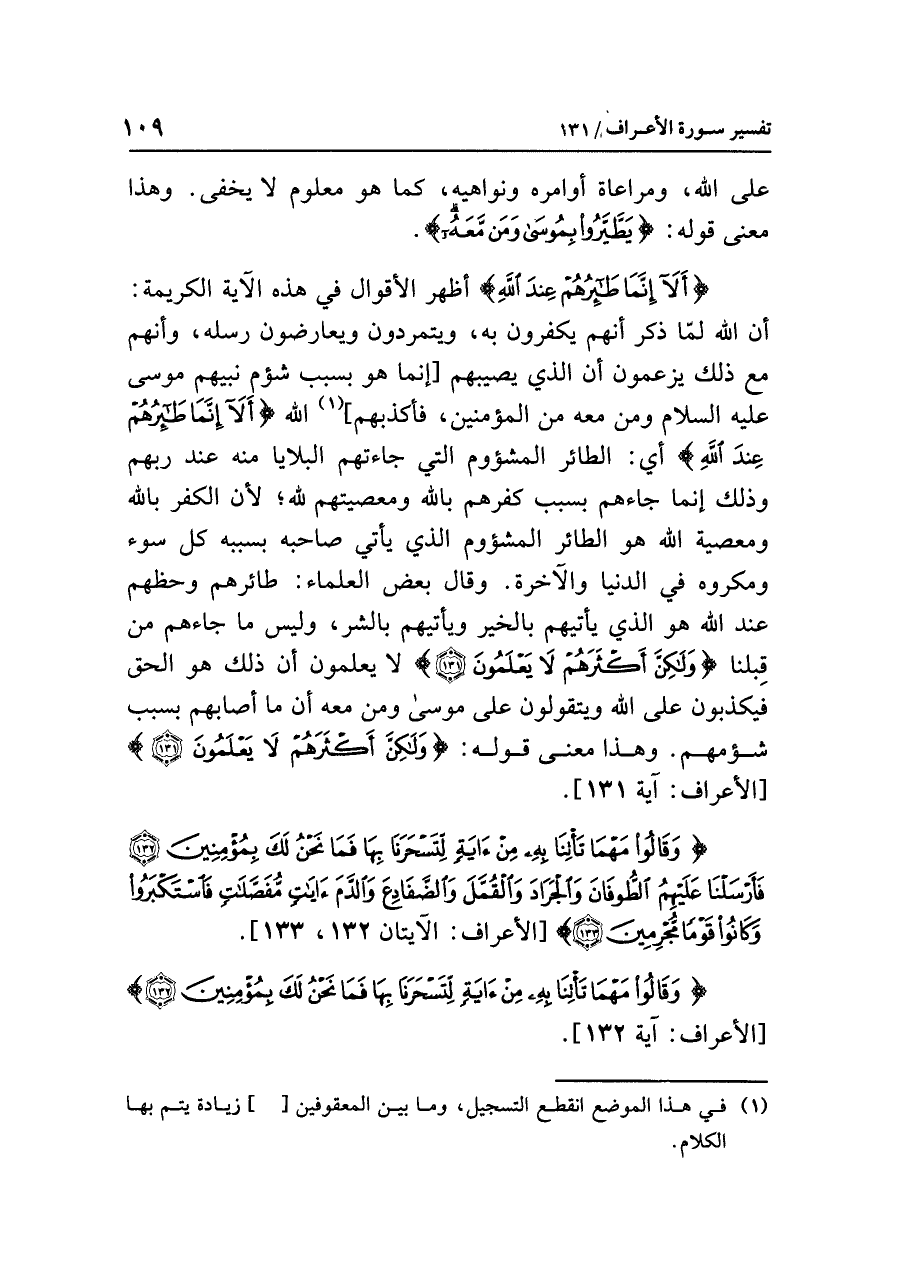 تفسير سورة الأعراف / ١٣١ ١٠٩
على الله، ومراعاة أوامره ونواهيه، كما هو معلوم لا يخفى. وهذا
معنى قوله: ﴿يَطَّيَّرُواْ بِمُوسَىٰ وَمَن مَّعَهُۥٓ﴾.
﴿أَلَآ إِنَّمَا طَٰٓئِرُهُمْ عِندَ ٱللَّهِ﴾ أظهر الأقوال في هذه الآية الكريمة:
أن الله لمّا ذكر أنهم يكفرون به، ويتمردون ويعارضون رسله، وأنهم
مع ذلك يزعمون أن الذي يصيبهم [إنما هو بسبب شؤم نبيهم موسى
عليه السلام ومن معه من المؤمنين، فأكذبهم](١) الله ﴿أَلَآ إِنَّمَا طَٰٓئِرُهُمْ
عِندَ ٱللَّهِ﴾ أي: الطائر المشؤوم التي جاءتهم البلايا منه عند ربهم
وذلك إنما جاءهم بسبب كفرهم بالله ومعصيتهم لله؛ لأن الكفر بالله
ومعصية الله هو الطائر المشؤوم الذي يأتي صاحبه بسببه كل سوء
ومكروه في الدنيا والآخرة. وقال بعض العلماء: طائرهم وحظهم
عند الله هو الذي يأتيهم بالخير ويأتيهم بالشر، وليس ما جاءهم من
قِبلنا ﴿وَلَٰكِنَّ أَكْثَرَهُمْ لَا يَعْلَمُونَ ١٣١﴾ لا يعلمون أن ذلك هو الحق
فيكذبون على الله ويتقولون على موسىٰ ومن معه أن ما أصابهم بسبب
شؤمهم. وهذا معنى قوله: ﴿وَلَٰكِنَّ أَكْثَرَهُمْ لَا يَعْلَمُونَ ١٣١﴾
[الأعراف: آية ١٣١].
﴿وَقَالُواْ مَهْمَا تَأْتِنَا بِهِۦ مِنْ ءَايَةٍ لِّتَسْحَرَنَا بِهَا فَمَا نَحْنُ لَكَ بِمُؤْمِنِينَ ١٣٢
فَأَرْسَلْنَا عَلَيْهِمُ ٱلطُّوفَانَ وَٱلْجَرَادَ وَٱلْقُمَّلَ وَٱلضَّفَادِعَ وَٱلدَّمَ ءَايَٰتٍ مُّفَصَّلَٰتٍ فَٱسْتَكْبَرُواْ
وَكَانُواْ قَوْمًا مُّجْرِمِينَ ١٣٣﴾ [الأعراف: الآيتان ١٣٢، ١٣٣].
﴿وَقَالُواْ مَهْمَا تَأْتِنَا بِهِۦ مِنْ ءَايَةٍ لِّتَسْحَرَنَا بِهَا فَمَا نَحْنُ لَكَ بِمُؤْمِنِينَ ١٣٢﴾
[الأعراف: آية ١٣٢].
(١) في هذا الموضع انقطع التسجيل، وما بين المعقوفين [ ] زيادة يتم بها
الكلام.